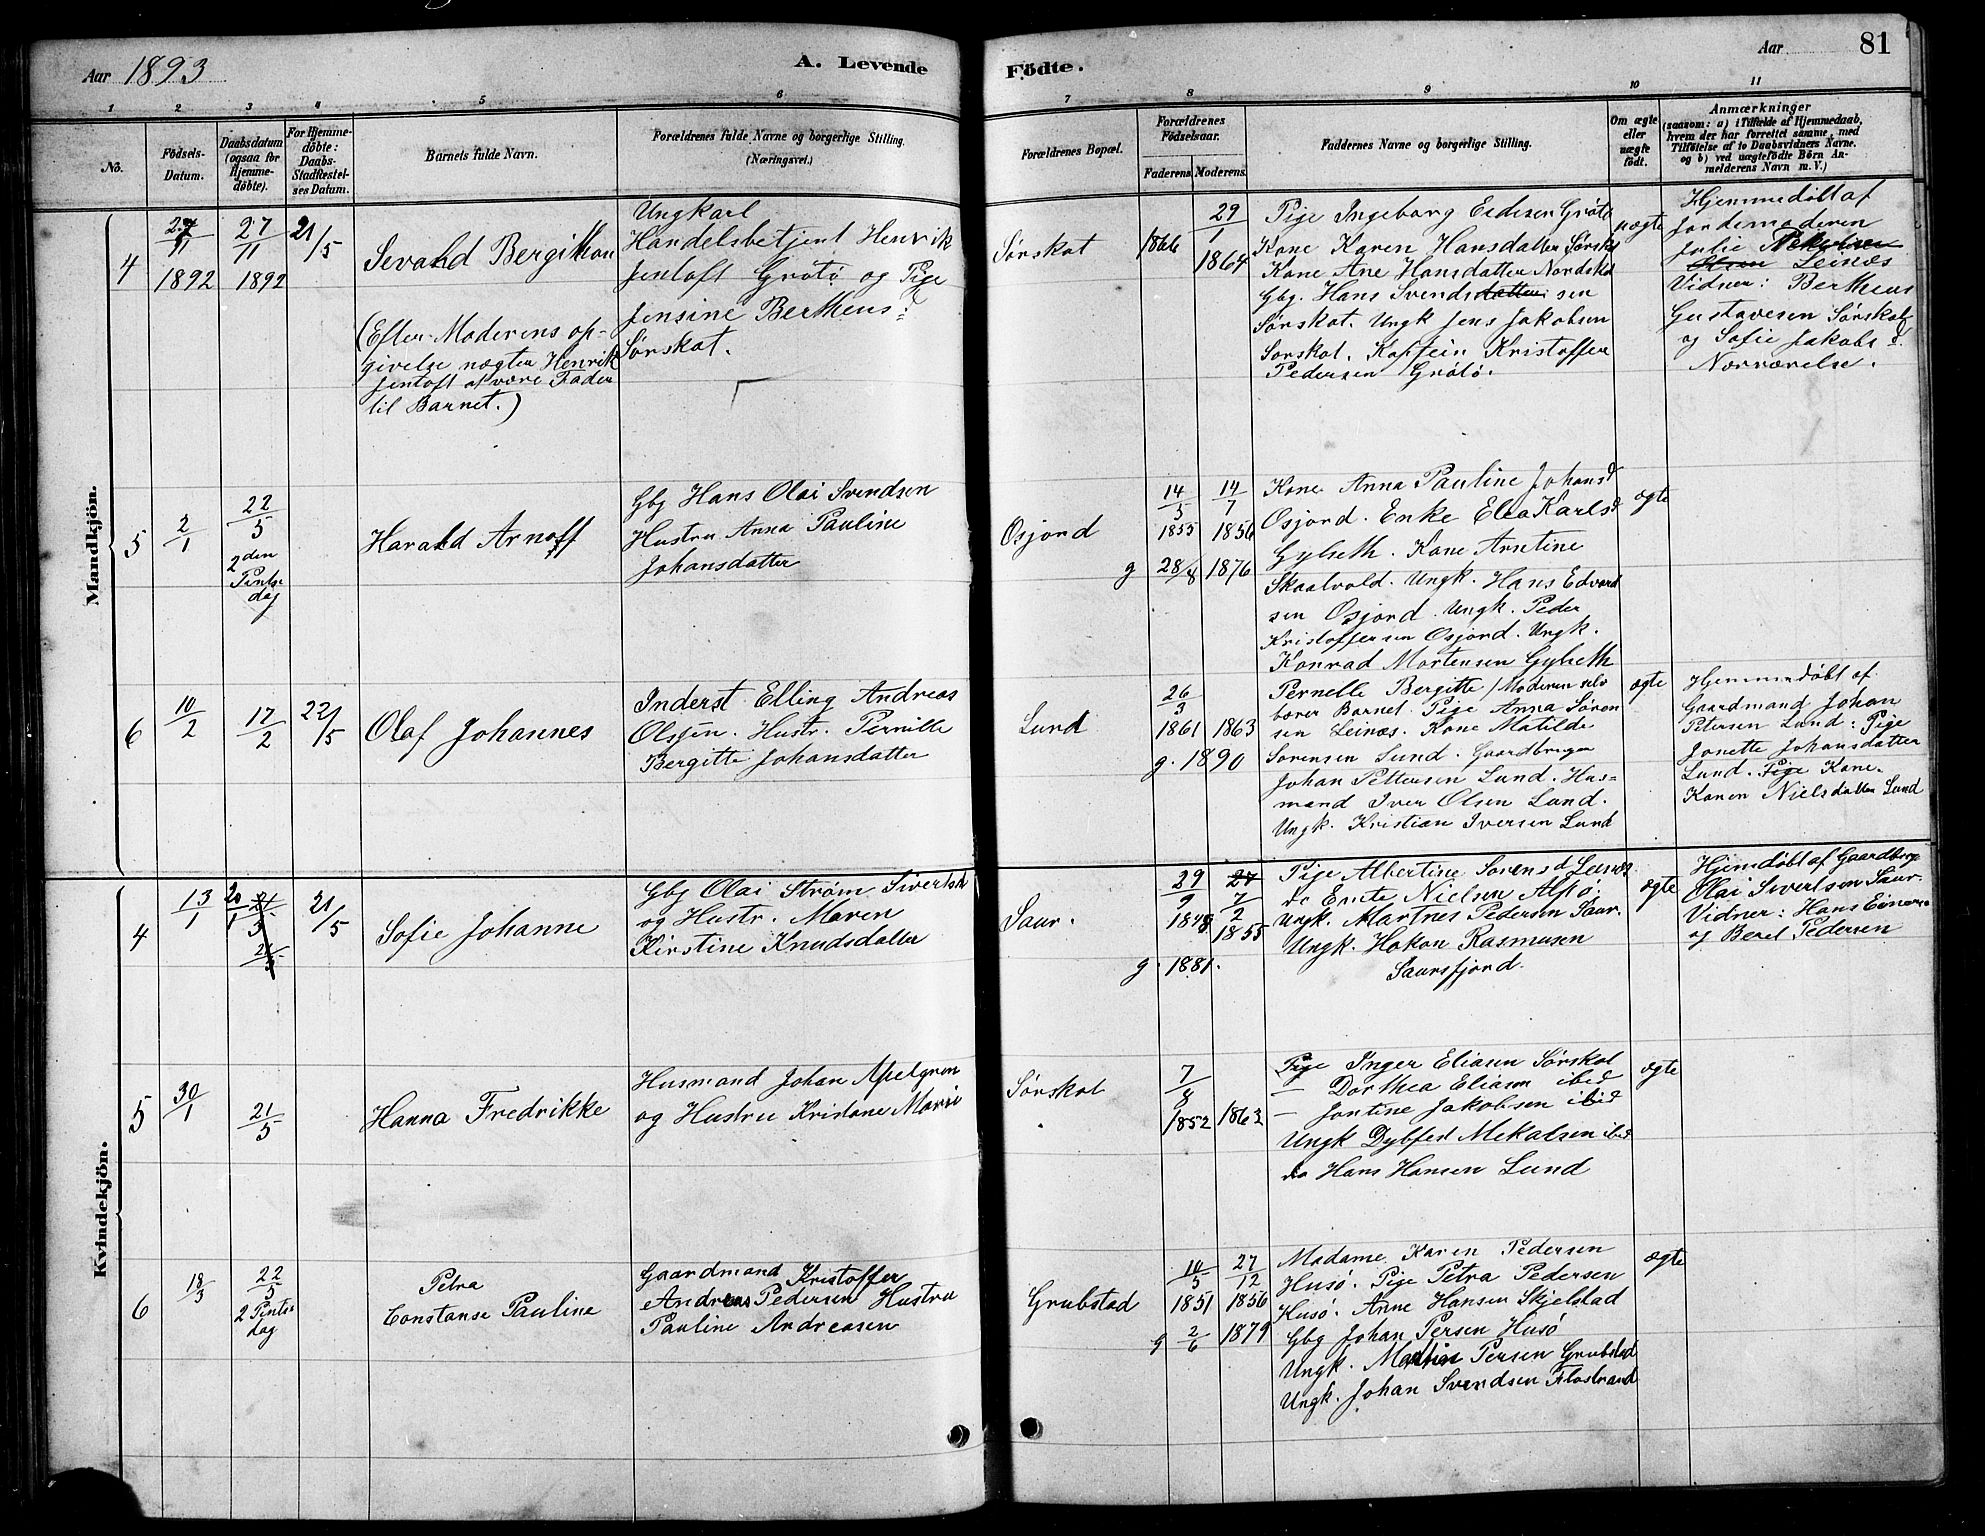 Aar 1893
A. Levende
Födte.
Aar
81
1
2
3
4
5
6
7
8
9
10
11
No.
Födsels-
Datum.
Daabsdatum
(ogsaa for
Hjemme-
döbte).
For Hjemme-
döbte:
Daabs-
Stadfæstel-
ses Datum.
Barnets fulde Navn.
Forældrenes fulde Navne og borgerlige Stilling.
(Næringsvei.)
Forældrenes Bopæl.
Forældrenes
Födselsaar.
Faderens.
Moderens.
Faddernes Navne og borgerlige Stilling.
Om ægte
eller
uægte
födt.
Anmærkninger
(saasom: a) i Tilfælde af Hjemmedaab,
hvem der har forrettet samme, med
Tilföielse af to Daabsvidners Navne.
og b) ved uægtefödte Börn An-
melderens Navn m. V.)
Mandkjön.
4
11
1892
27
11
1892
21/5
Sevald Bergithon
(Efter Moderens op-
givelse nægter Henrik
Jentoft at være Fader
til Barnet.)
Ungkarl
Handelsbetjent Henrik
Jentoft Grøtø og Pige
Jensine Bertheus d
Sørskot.
Sørskot
1866
29
1
1864
Pige Ingeborg Edesen Grøtø
Kone Karen Hansdatter Sørskot
Kone Ane Hansdatter Nordskot
Gbg. Hans Svendsdatter sen
Sørskot. Ungk Jens Jakobsen
Sørskot. Kaptein Kristoffer
Pedersen Grøtø.
uægte
Hjemmedøbt af
Jordemoderen
Julie Pedersen
Olsen Leinæs
Vidner: Bertheus
Gustavesen Sørskot
og Sofie Jakobs d.
Nærværelse.
5
2
1
22
5
2den
Pintse
dag
Harald Arnoff
Gbg Hans Olai Svendsen
Hustru Anna Pauline
Johansdatter
Osjord
14
5
1855
g 28/8
14
7
1856
1876
Kone Anna Pauline Johansd
Osjord. Enke Elea Karlsd
Gylseth. Kone Arntine
Skaalvold. Ungk. Hans Edvard
sen Osjord. Ungk. Peder
Kristoffersen Osjord. Ungk.
Konrad Mortensen Gylseth
ægte
6
10
2
17
2
22/5
Olaf Johannes
Inderst Elling Andreas
Olsen. Hustr. Pernille
Bergitte Johansdatter
Lund
26
3
1861
1863
g. 1890
Pernelle Bergitte / Moderen selv
bærer Barnet. Pige Anna Søren
sen Leinæs. Kone Matilde
Sørensen Lund. Gaardbruger
Johan Pettersen Lund. Hus-
mand Iver Olsen Lund.
Ungk. Kristian Iversen Lund
ægte
Hjemmedøbt af
Gaardmand Johan
Petersen Lund: Pige
Jonette Johansdatter
Lund. Pige Kone.
Karen Nielsdatter Lund
Kvindekjön.
4
13
1
20
1
21
5
21/5
Sofie Johanne
Gbg Olai Strøm Sivertsen
og Hustr. Maren
Kirstine Knudsdatter
Saur.
29
9
1848
27
7
2
1855
g. 1881.
Pige Albertine Sørens d Leinæs
do Emte Nielsen Alsø.
Ungk. Martnes Pedersen Saur.
Ungk. Hakon Rasmusen
Saursfjord.
ægte
Hjemdøbt af Gaardbrg.
Olai Sivertsen Saur.
Vidner: Hans Einers.
og Beret Pedersen
5
30
1
21
5
Hanna Fredrikke
Husmand Johan Apelgren
og Hustru Kristane Marie
Sørskot
7
8
1852
1863
Pige Inger Eliasen Sørskot
— Dorthea Eliasen ibid
— Jontine Jakobsen ibid
Ungk Dybfest Mekalsen ibid
do Hans Hansen Lund
ægte
6
18
3
22
5
2 Pintse
dag
Petra
Constanse Pauline
Gaardmand Kristoffer
Andreas Pedersen Hustru
Pauline Andreasen
Grubstad
10
5
1851
g 2/6
27
12
1856
1879
Madame Karen Pedersen
Husø. Pige Petra Pedersen
Husø. Anne Hansen Skjelstad
Gbg Johan Persen Husø
Ungk. Martin Persen Grubstad
Ungk. Johan Svendsen Flostrand
ægte